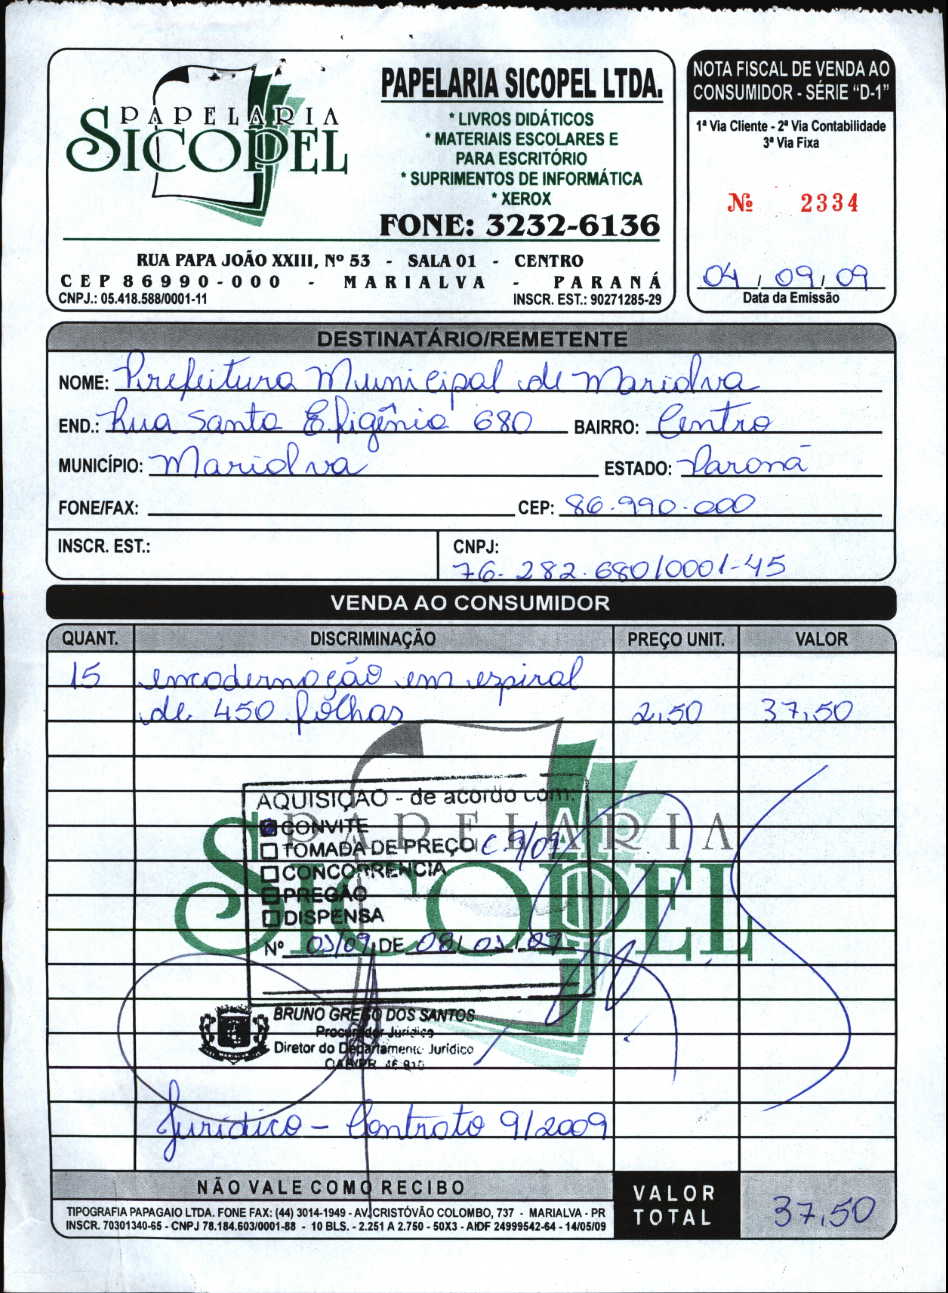 PAPELARIA
SICOPEL
PAPELARIA SICOPEL LTDA.
* LIVROS DIDÁTICOS
* MATERIAIS ESCOLARES E
PARA ESCRITÓRIO
* SUPRIMENTOS DE INFORMÁTICA
* XEROX
FONE: 3232-6136
RUA PAPA JOÃO XXIII, Nº 53 - SALA 01 - CENTRO
CEP 86990-000 - MARIALVA - PARANÁ
CNPJ.: 05.418.588/0001-11 INSCR. EST.: 90271285-29
NOTA FISCAL DE VENDA AO
CONSUMIDOR - SÉRIE “D-1”
1ª Via Cliente - 2ª Via Contabilidade
3ª Via Fixa
Nº 2334
04 / 09 / 09
Data da Emissão
DESTINATÁRIO/REMETENTE
NOME: Prefeitura Municipal de Marialva
END.: Rua Santa Efigênia 680 BAIRRO: Centro
MUNICÍPIO: Marialva ESTADO: Paraná
FONE/FAX: CEP: 86.990-000
INSCR. EST.: CNPJ:
76.282.680/0001-45
VENDA AO CONSUMIDOR
QUANT. DISCRIMINAÇÃO PREÇO UNIT. VALOR
15 encadernação em espiral
de 450 folhas 2,50 37,50
AQUISIÇÃO - de acordo com:
CONVITE
TOMADA DE PREÇO C 9/09
CONCORRENCIA
PREGÃO
DISPENSA
Nº 03/09 DE
PAPELARIA
SICOPEL
BRUNO GREGO DOS SANTOS
Procurador Jurídico
Diretor do Departamento Jurídico
OAB/PR
Jurídico - Contrato 9/2009
NÃO VALE COMO RECIBO
VALOR
TOTAL
37,50
TIPOGRAFIA PAPAGAIO LTDA. FONE FAX: (44) 3014-1949 - AV. CRISTÓVÃO COLOMBO, 737 - MARIALVA - PR
INSCR. 70301340-65 - CNPJ 78.184.603/0001-88 - 10 BLS. - 2.251 A 2.750 - 50X3 - AIDF 24999542-64 - 14/05/09